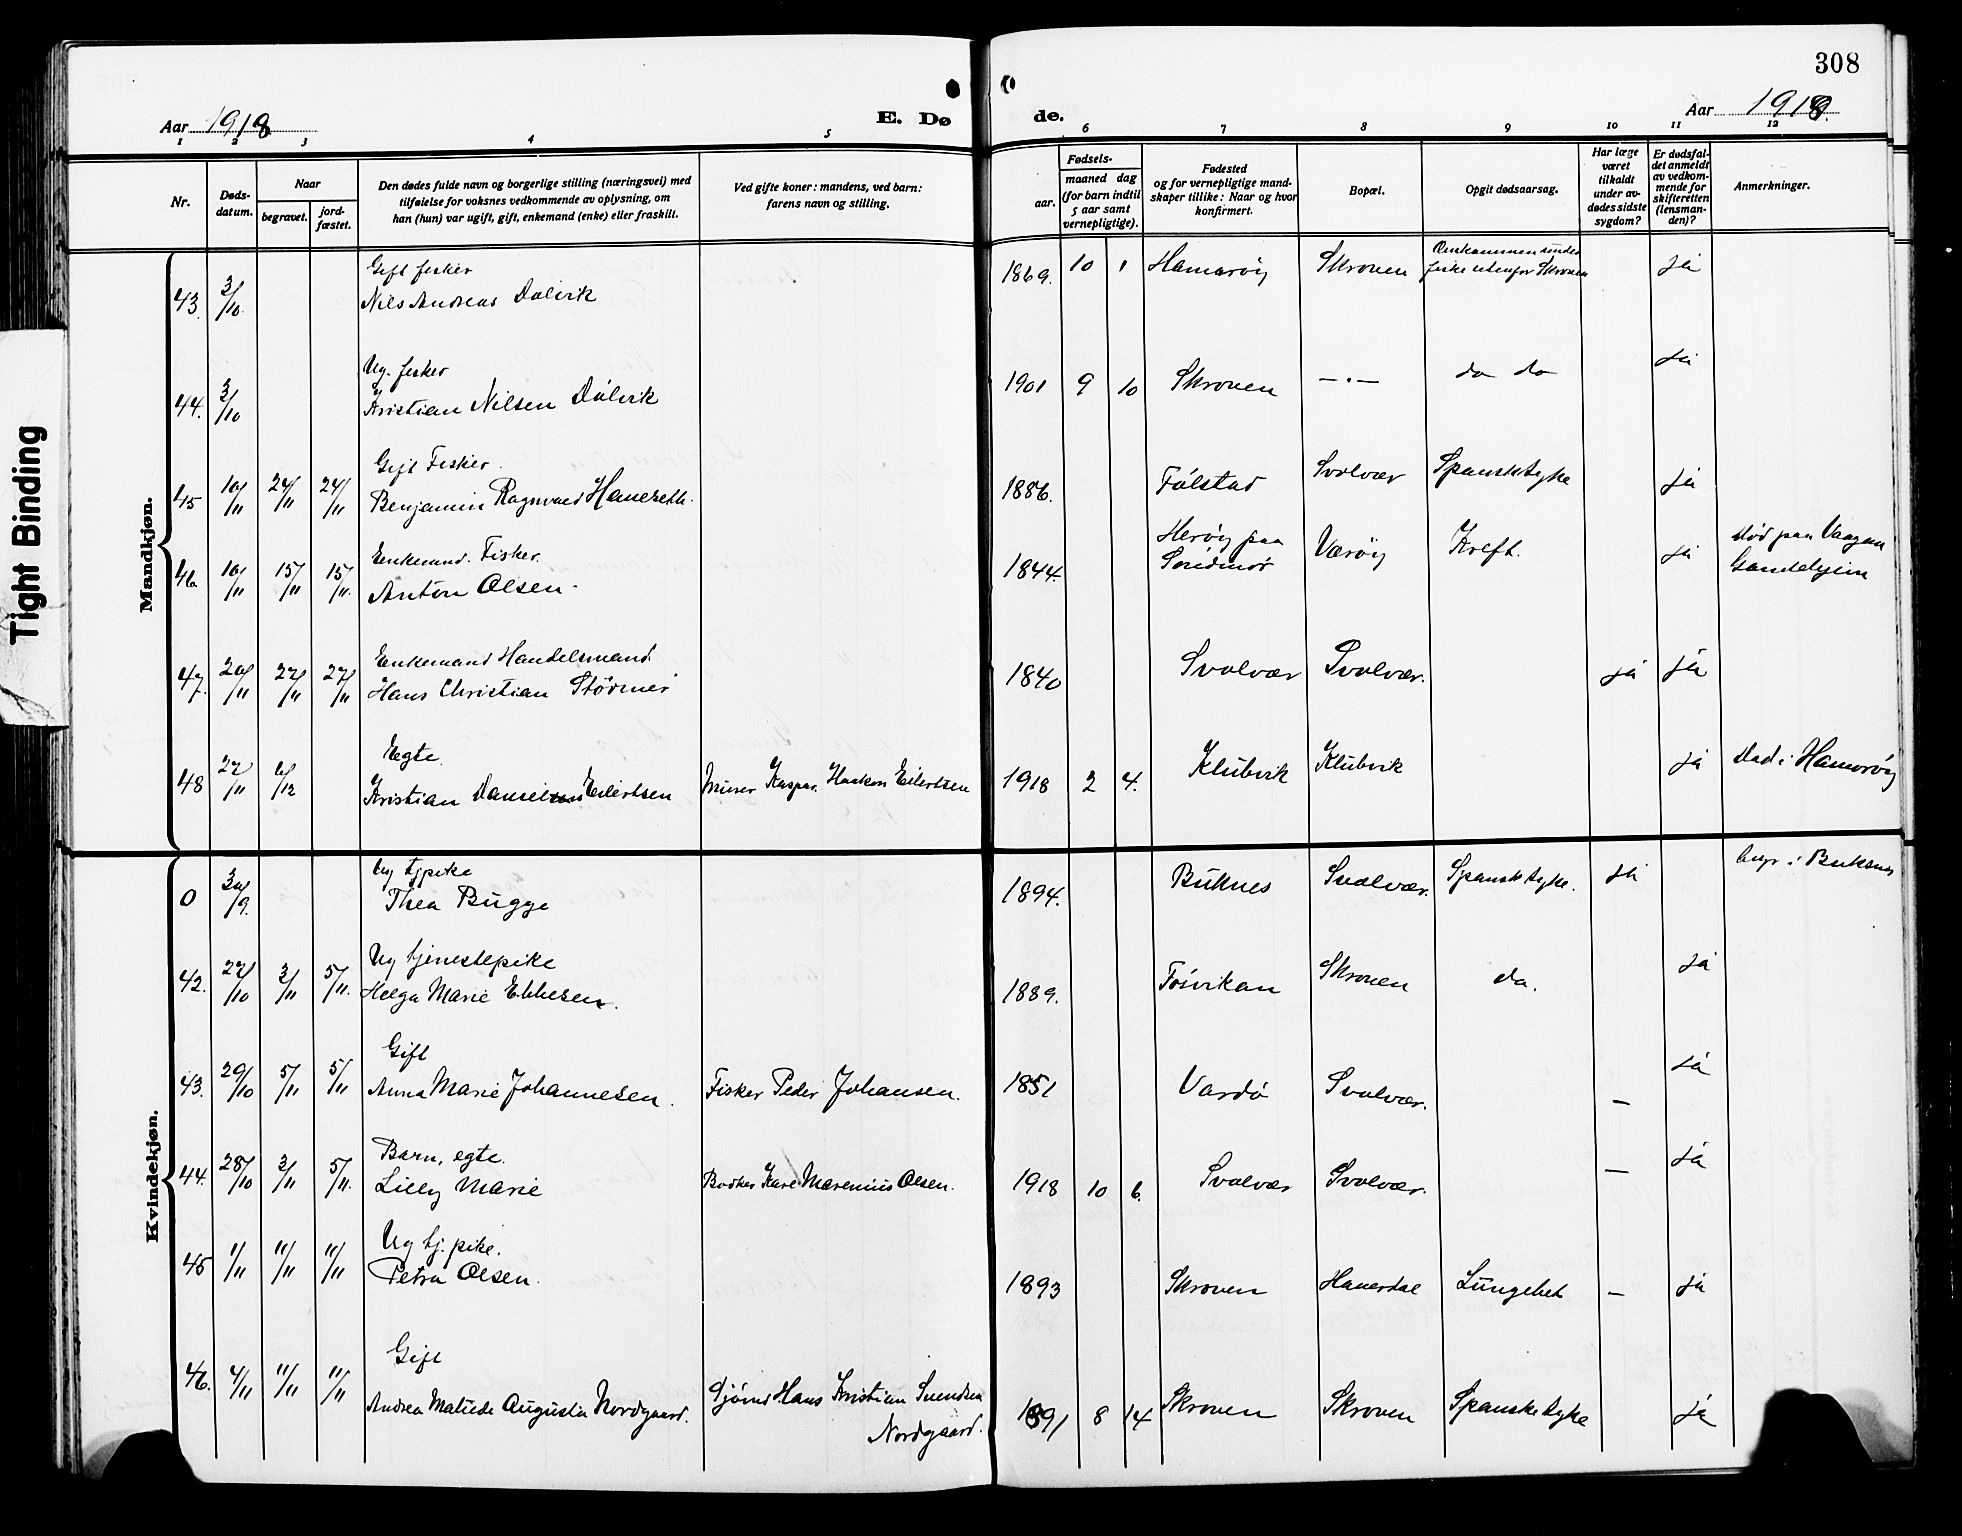 308
Aar 1918
E. Dø
de.
Aar 1918.
1 2 3 4 5 6 7 8 9 10 11 12
Nr.
Døds-
datum.
Naar
begravet.
jord-
fæstet.
Den dødes fulde navn og borgerlige stilling (næringsvei) med
tilføielse for voksnes vedkommende av oplysning, om
han (hun) var ugift, gift, enkemand (enke) eller fraskilt.
Ved gifte koner: mandens, ved barn:
farens navn og stilling.
Fødsels-
aar.
maaned dag
(for barn indtil
5 aar samt
vernepligtige).
Fødested
og for vernepligtige mand-
skaper tillike: Naar og hvor
konfirmert.
Bopæl.
Opgit dødsaarsag.
Har læge
været
tilkaldt
under av-
dødes sidste
sygdom?
Er dødsfal-
det anmeldt
av vedkom-
mende for
skifteretten
(lensman-
den)?
Anmerkninger.
Tight Binding
Mandkjøn.
43. 3/10. Gift fisker
Nils Andreas Dalvik
1869. 10 1 Hamarøy Skroven Omkommen under
fiske utenfor Skroven
ja
44. 3/10 Ug. fisker
Kristian Nilsen Dalvik
1901 9 10 Skroven —·— do do ja
45 10/11 24/11 24/11 Gift Fisker.
Benjamin Ragnvald
1886. Følstad Svolvær Spansksyke ja
46. 10/11 15/11 15/11. Enkemand. Fisker.
Anton Olsen.
1844. Herøy paa
Søndmør
Værøy Kreft. ja død paa Vaagan
Gamlehjem
47. 20/11 27/11 27/11 Enkemand Handelsmand
Hans Christian Størmer
1840 Svolvær Svolvær. ja ja
48 27/11 6/12 Egte.
Kristian Daniel Eilertsen
Murer Kaspar Haakon Eilertsen
1918 2 4. Klubvik Klubvik ja Død i Hamarøy
Kvindekjøn.
0 30/9. Ug tjpike
Thea Bugge
1894. Buknes Svolvær. Spansksyke. ja begr i Buksnes
42. 27/10 3/11 5/11. Ug tjenestepike
Helga Marie Ebbesen.
1889. Skroven do. ja
43. 29/10 5/11 5/11 Gift
Anna Marie Johannesen.
Fisker Peder Johansen.
1851 Vardø Svolvær. — ja
44. 28/10 3/11 5/11. Barn, egte.
Lilly Marie
Bødker Karl Marenius Olsen.
1918 10 6. Svolvær Svolvær. — ja
45 1/11 11/11 11/11 Ug tj. pike.
Petra Olsen.
1893 Skroven Lungebet — ja
46. 4/11 11/11 11/11 Gift
Andrea Matilde Augusta Nordgaard.
Sjømd Hans Kristian Svendsen
Nordgaard.
1891 8 14 Skroven Skroven Spanskesyke ja